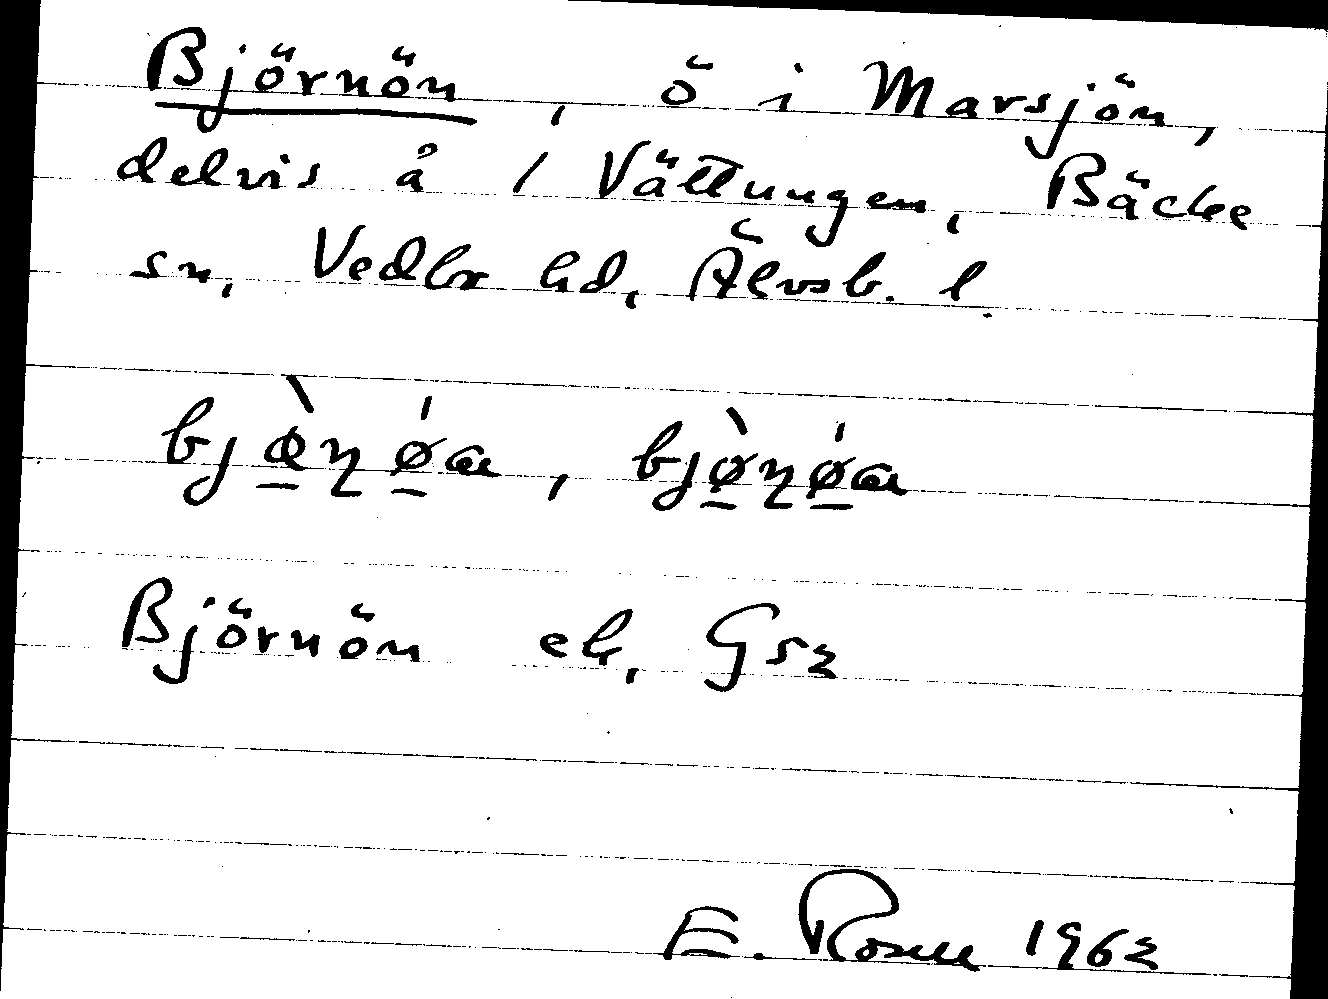 Björnön, ö i Marsjön,
delvis å 1 Vättungen, Bäcke
sn, Vedbo hd, Älvsb. l.
bjœ̀ɳǿœ, bjø̀ɳǿœ
Björnön ek, Gsz
E. Rosell 1962